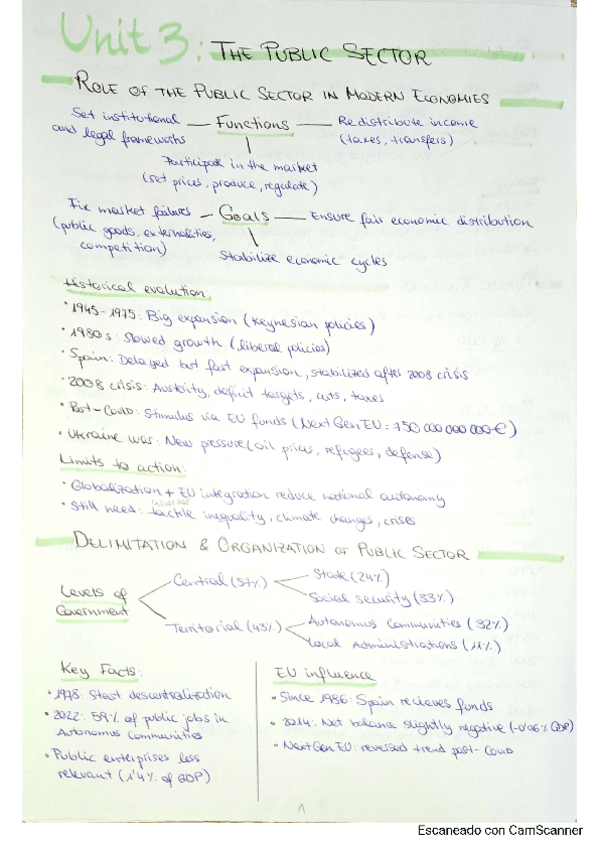 Unit 3: THE PUBLIC SECTOR
ROLE OF THE PUBLIC SECTOR IN MODERN ECONOMIES
Set institutional — Functions — Redistribute income
and legal frameworks (taxes, transfers)
Participate in the market
(set prices, produce, regulate)
Fix market failures — Goals — Ensure fair economic distribution
(public goods, externalities,
competition)
Stabilize economic cycles
Historical evolution:
· 1945-1975: Big expansion (Keynesian policies)
· 1980s: Slowed growth (liberal policies)
· Spain: Delayed but fast expansion, stabilized after 2008 crisis
· 2008 crisis: Austerity, deficit targets, cuts, taxes
· Post-Covid: Stimulus via EU funds (NextGenEU = 750 000 000 000€)
· Ukraine war: New pressure (oil prices, refugees, defense)
Limits to action:
· Globalization + EU integration reduce national autonomy
· Still need: tackle inequality, climate changes, crises
DELIMITATION & ORGANIZATION OF PUBLIC SECTOR
Levels of Government
Central (57%)
State (24%)
Social security (33%)
Territorial (43%)
Autonomus Communities (32%)
Local Administrations (11%)
Key Facts:
· 1978: Start descentralization
· 2022: 59% of public jobs in
Autonomus Communities
· Public enterprises less
relevant (1'4% of GDP)
EU influence
· Since 1986: Spain recieves funds
· 2014: Net balance slightly negative (-0'06% GDP)
· NextGenEU: reversed trend post-Covid
1
Escaneado con CamScanner